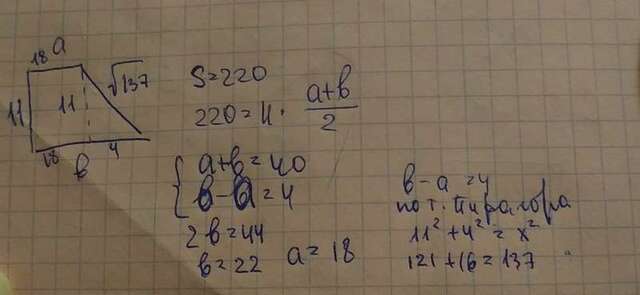 18 a
11
11
√137
18
4
b
S=220
220=11· a+b/2
{a+b=40
b-a=4
2b=44
b=22 a=18
b-a=4
по т. Пифагора
11²+4²=x²
121+16=137